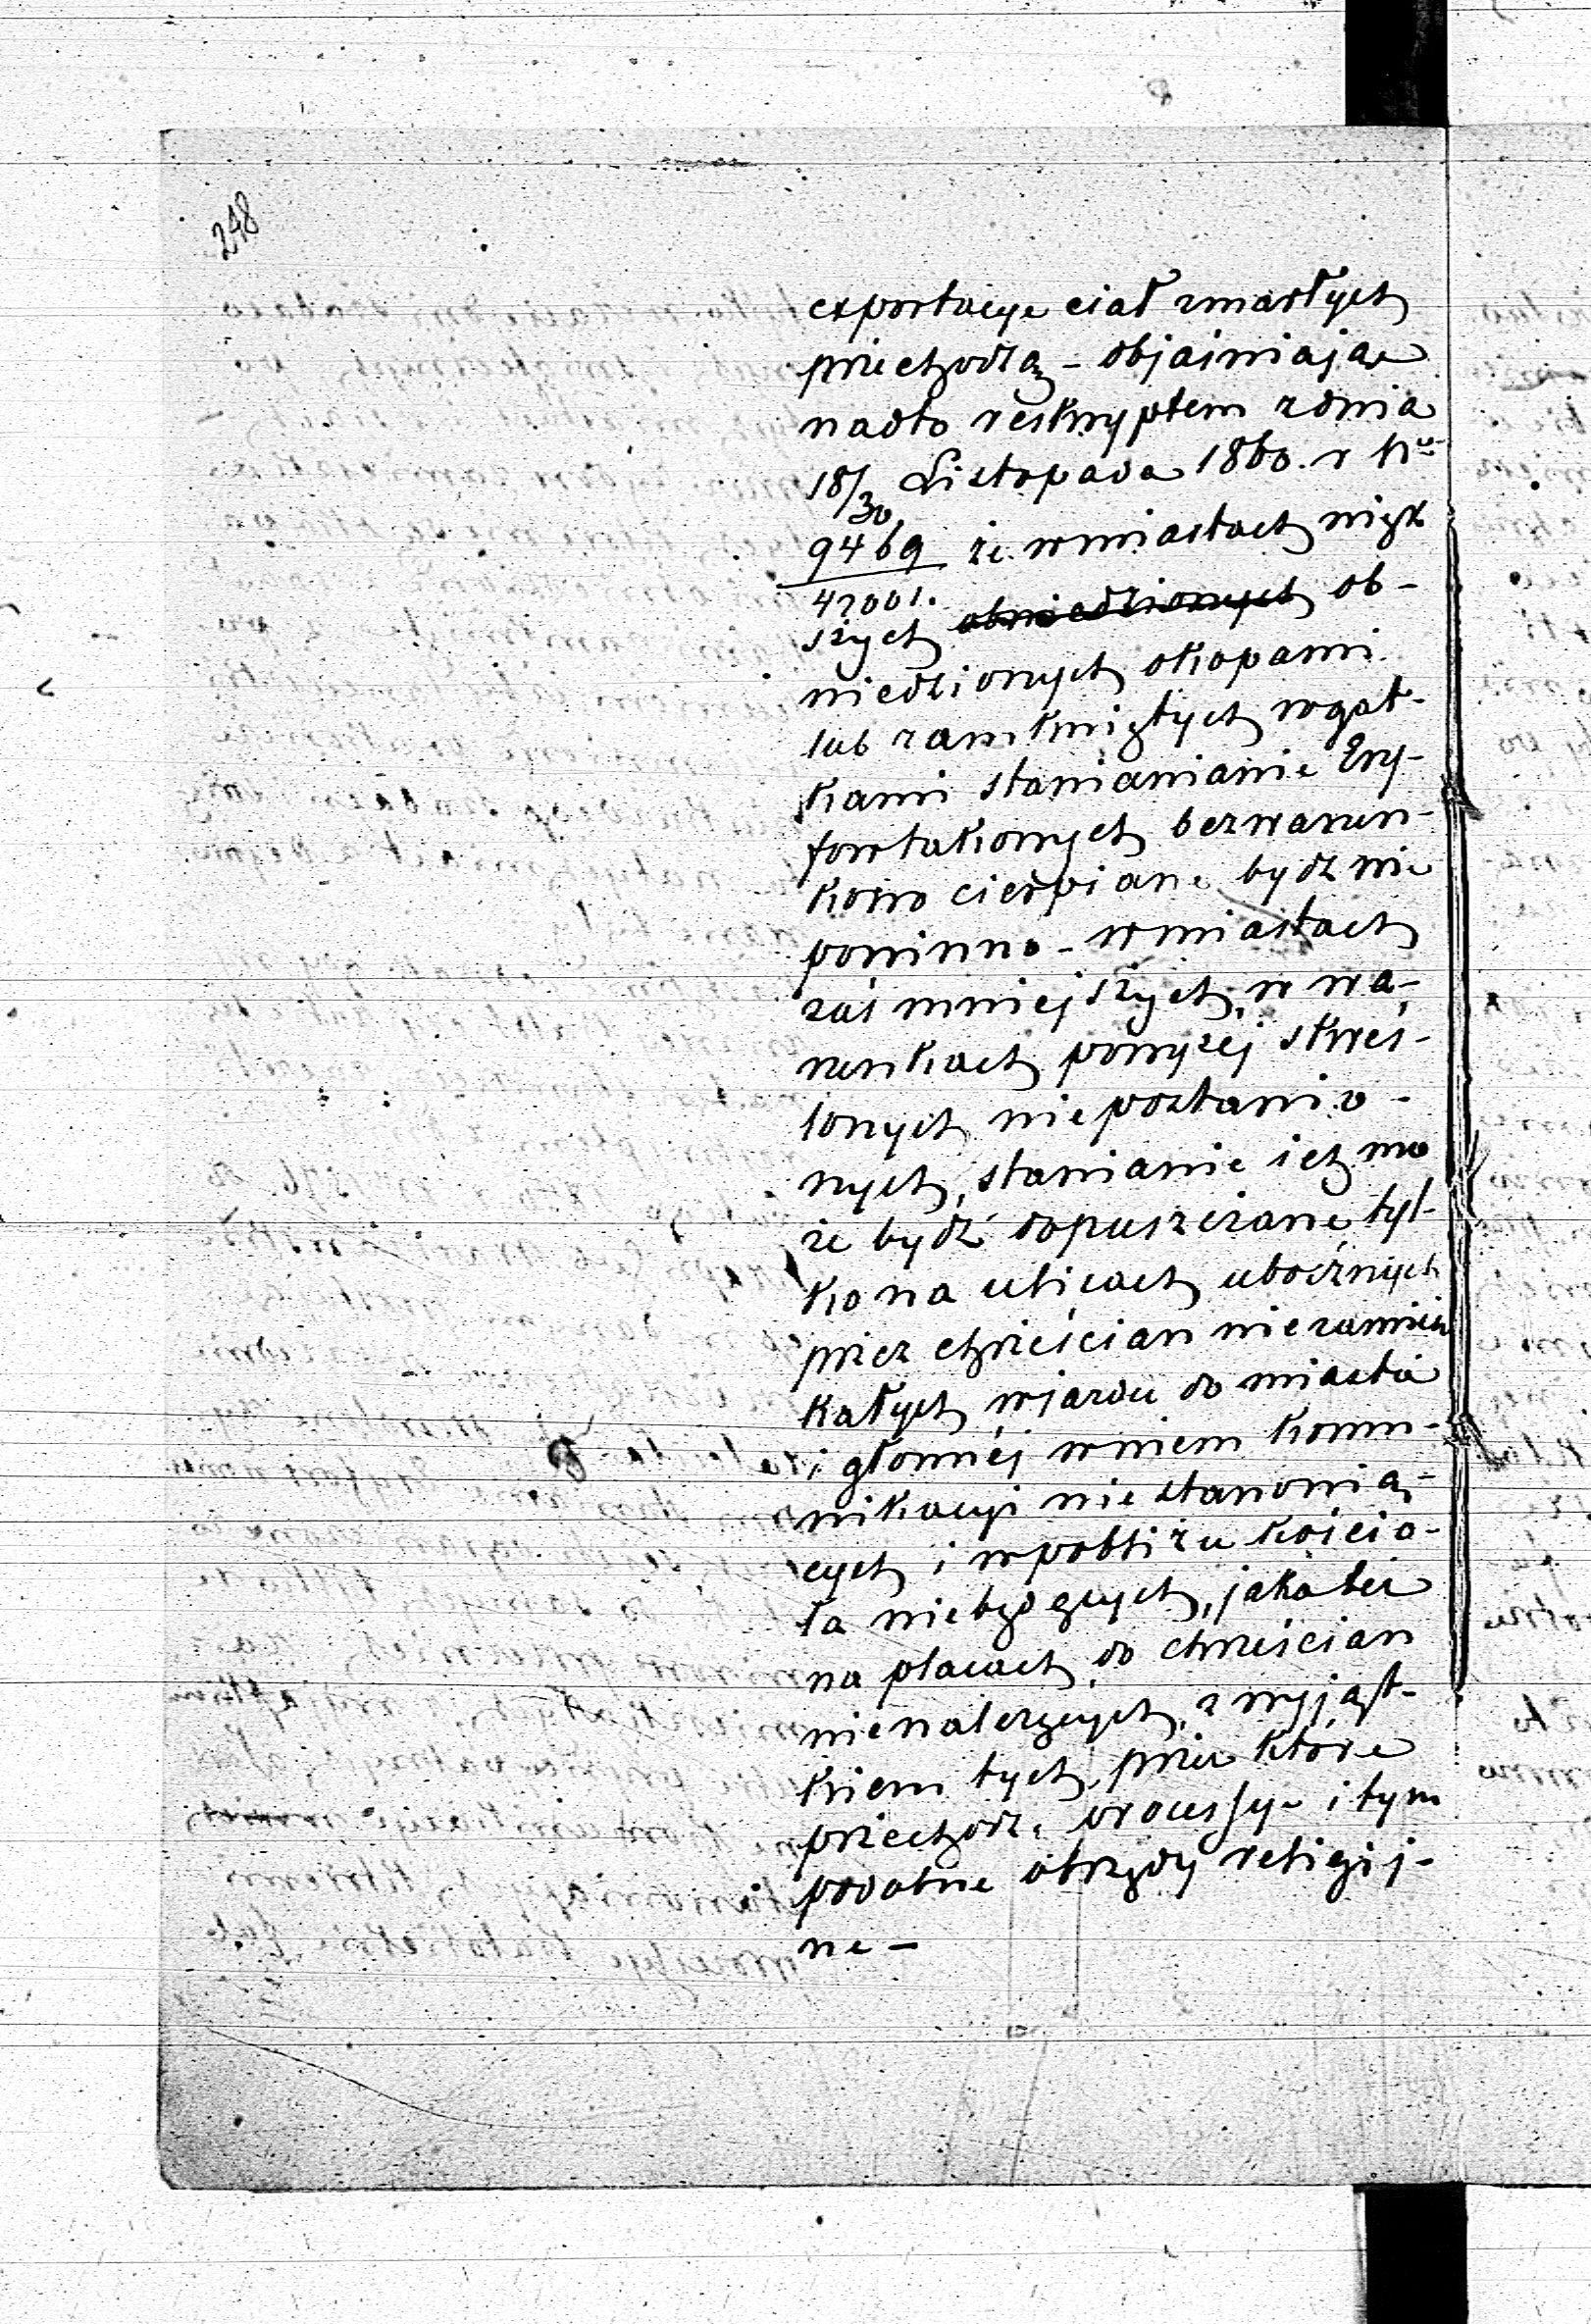 248
exportacye ciał zmarłych
przechodzą – objaśniając
nadto reskryptem z dnia
18/30 Listopada 1860. r Nr
9469/42001. że w miastach więk
szych obwiedzionych ob-
wiedzionych okopami
lub zamkniętych rogat-
kami stawianianie Ery-
fowtakiowych bezwarun-
kowo cierpiane bydź nie
powinno – w miastach
zaś mniejszych, w wa-
runkach powyżej skreś-
lonych nie postawio-
nych, stawianie ich mo
że bydź dopuszczane, tyl-
ko na ulicach ubocznych
przez chrześcian niezamiesz
kałych wjazdu do miasta
i głównéj w niem komu-
nikacyi nie stanowią-
cych i w pobliżu kościo-
ła niebędących, jako też
na placach do chrześcian
nienależących, z wyjąt-
kiem tych, przez które
przechodzą processye i tym
podobne obrzędy religij-
ne –